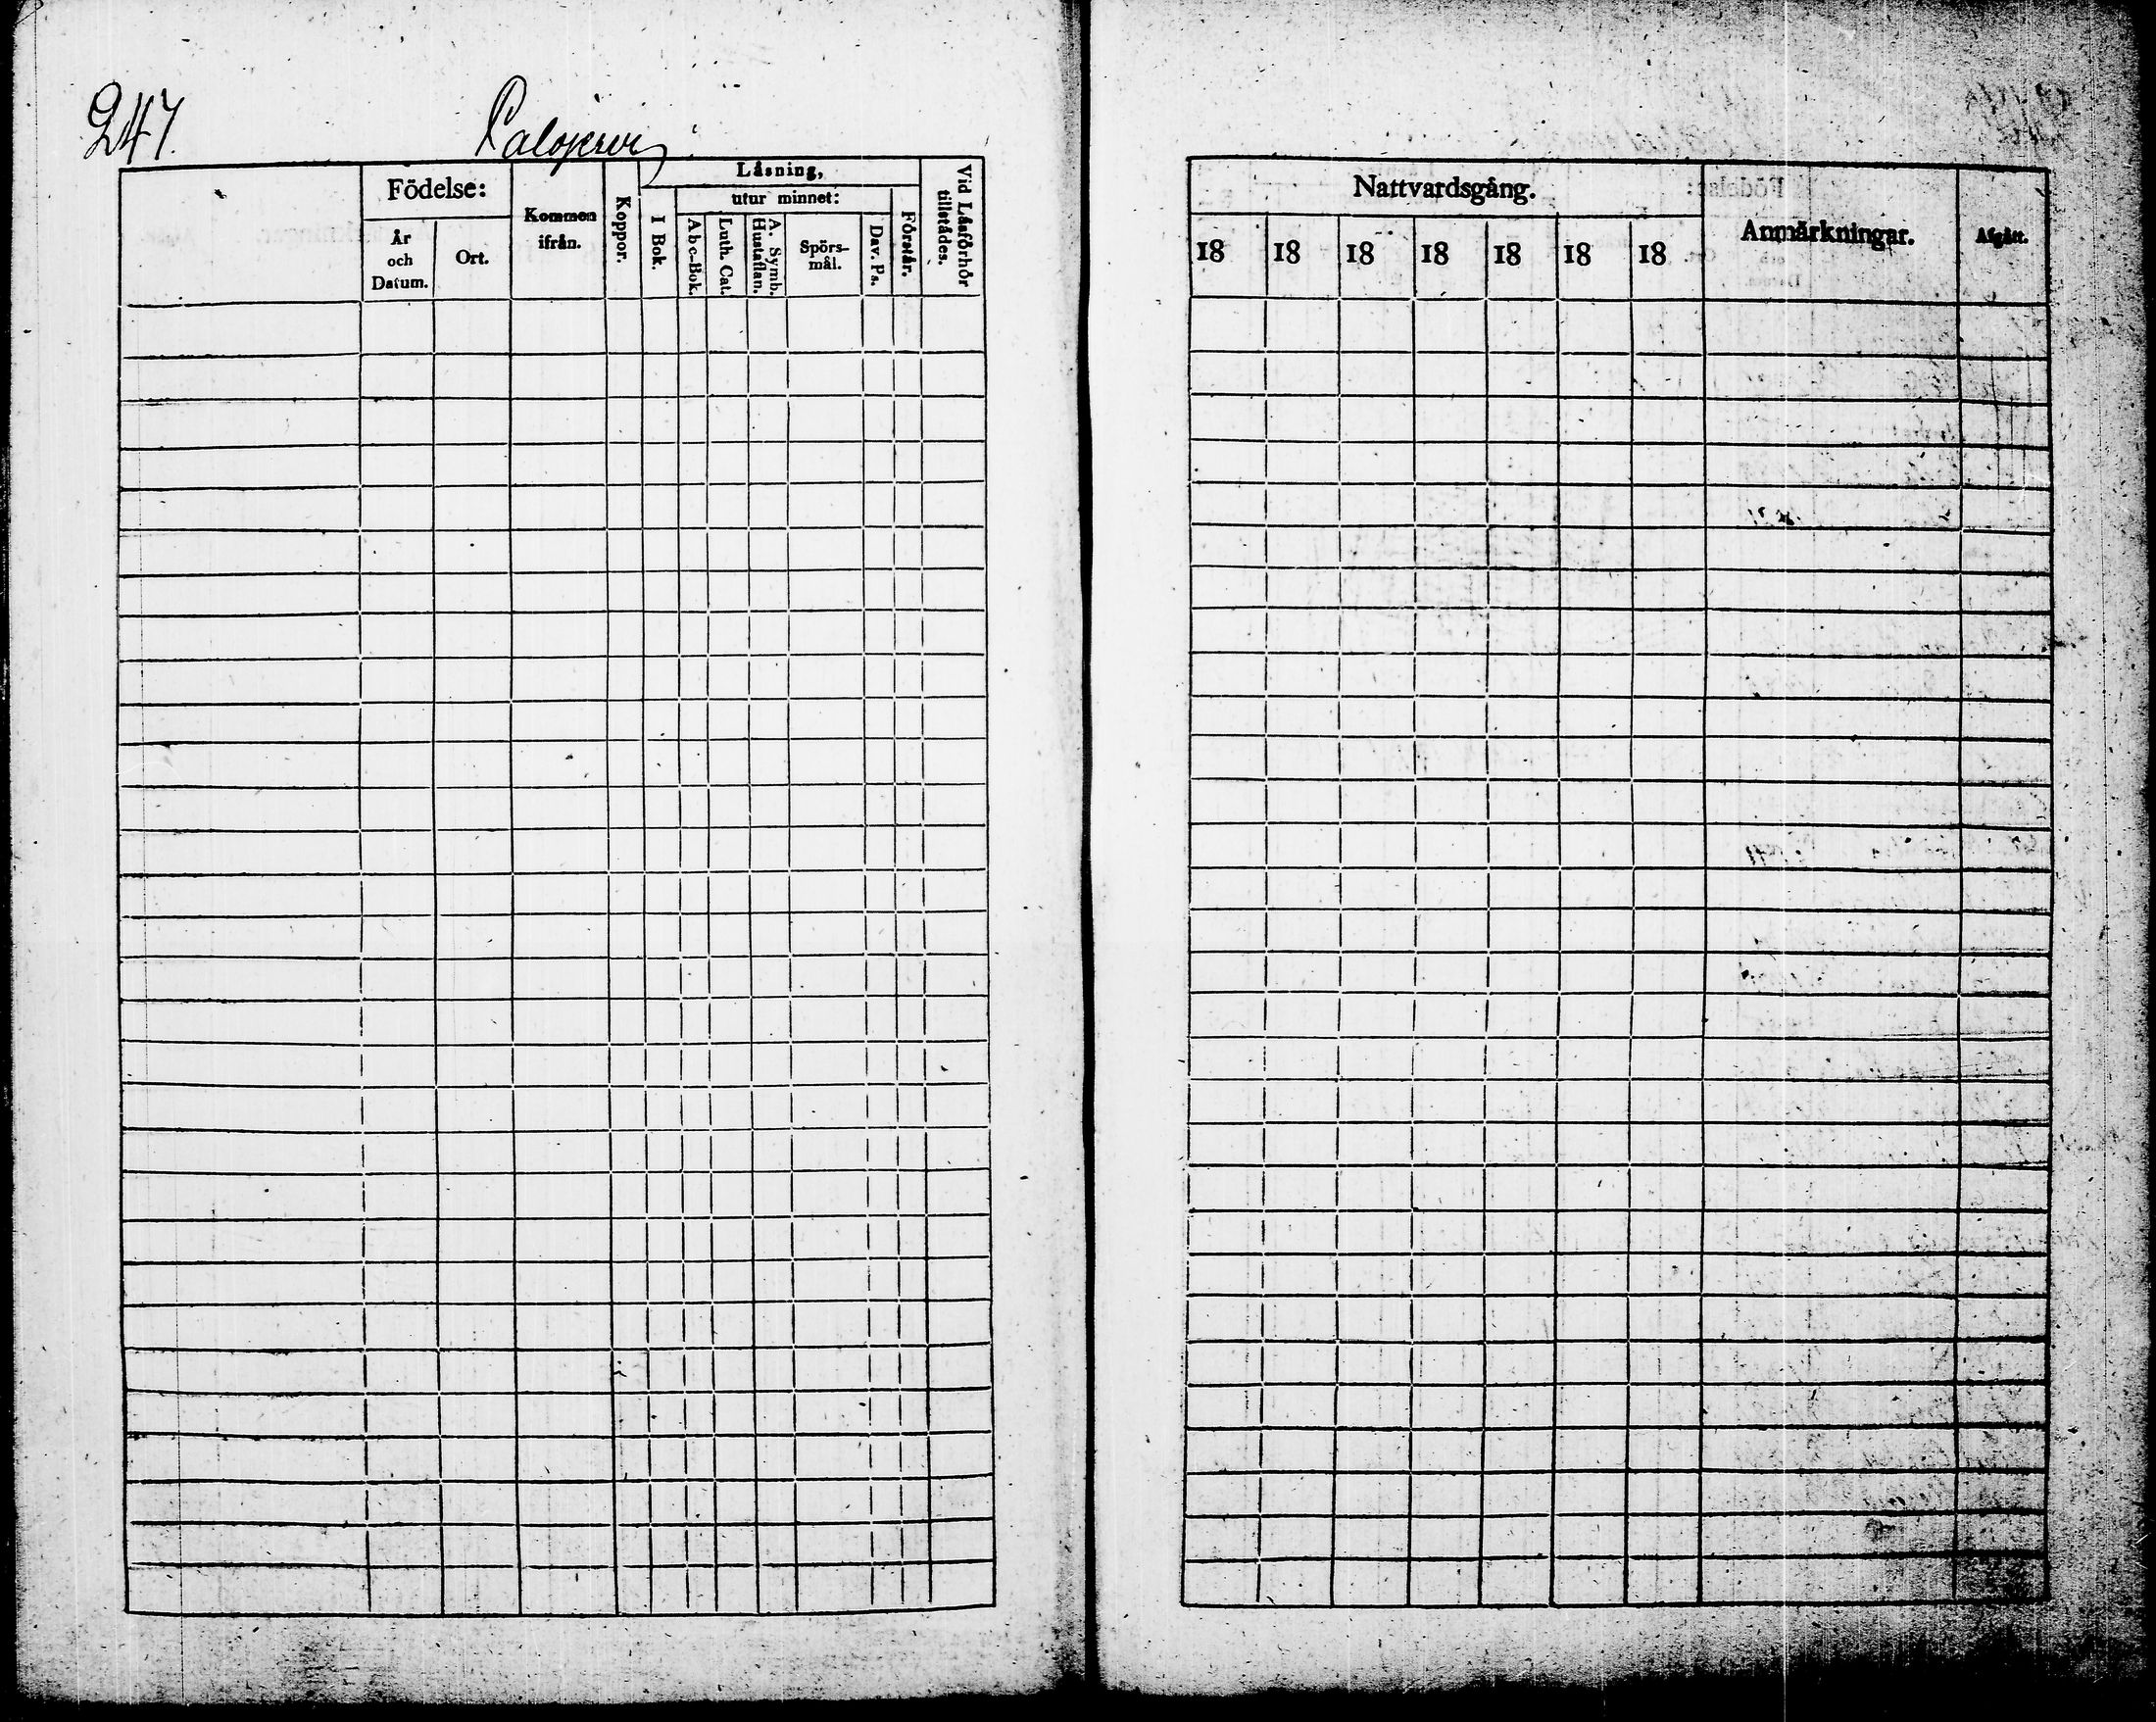 247.
Palojervi
Födelse:
År och Datum.
Ort.
Kommen ifrån.
Koppor.
Läsning,
I Bok.
utur minnet:
Abc-Bok.
Luth. Cat.
A. Symb. Hustaflan.
Spörs-
mål.
Dav. Ps.
Förstår.
Vid Läsförhör tillstädes.
Nattvardsgång.
18 18 18 18 18 18 18
Anmärkningar.
Afgått.